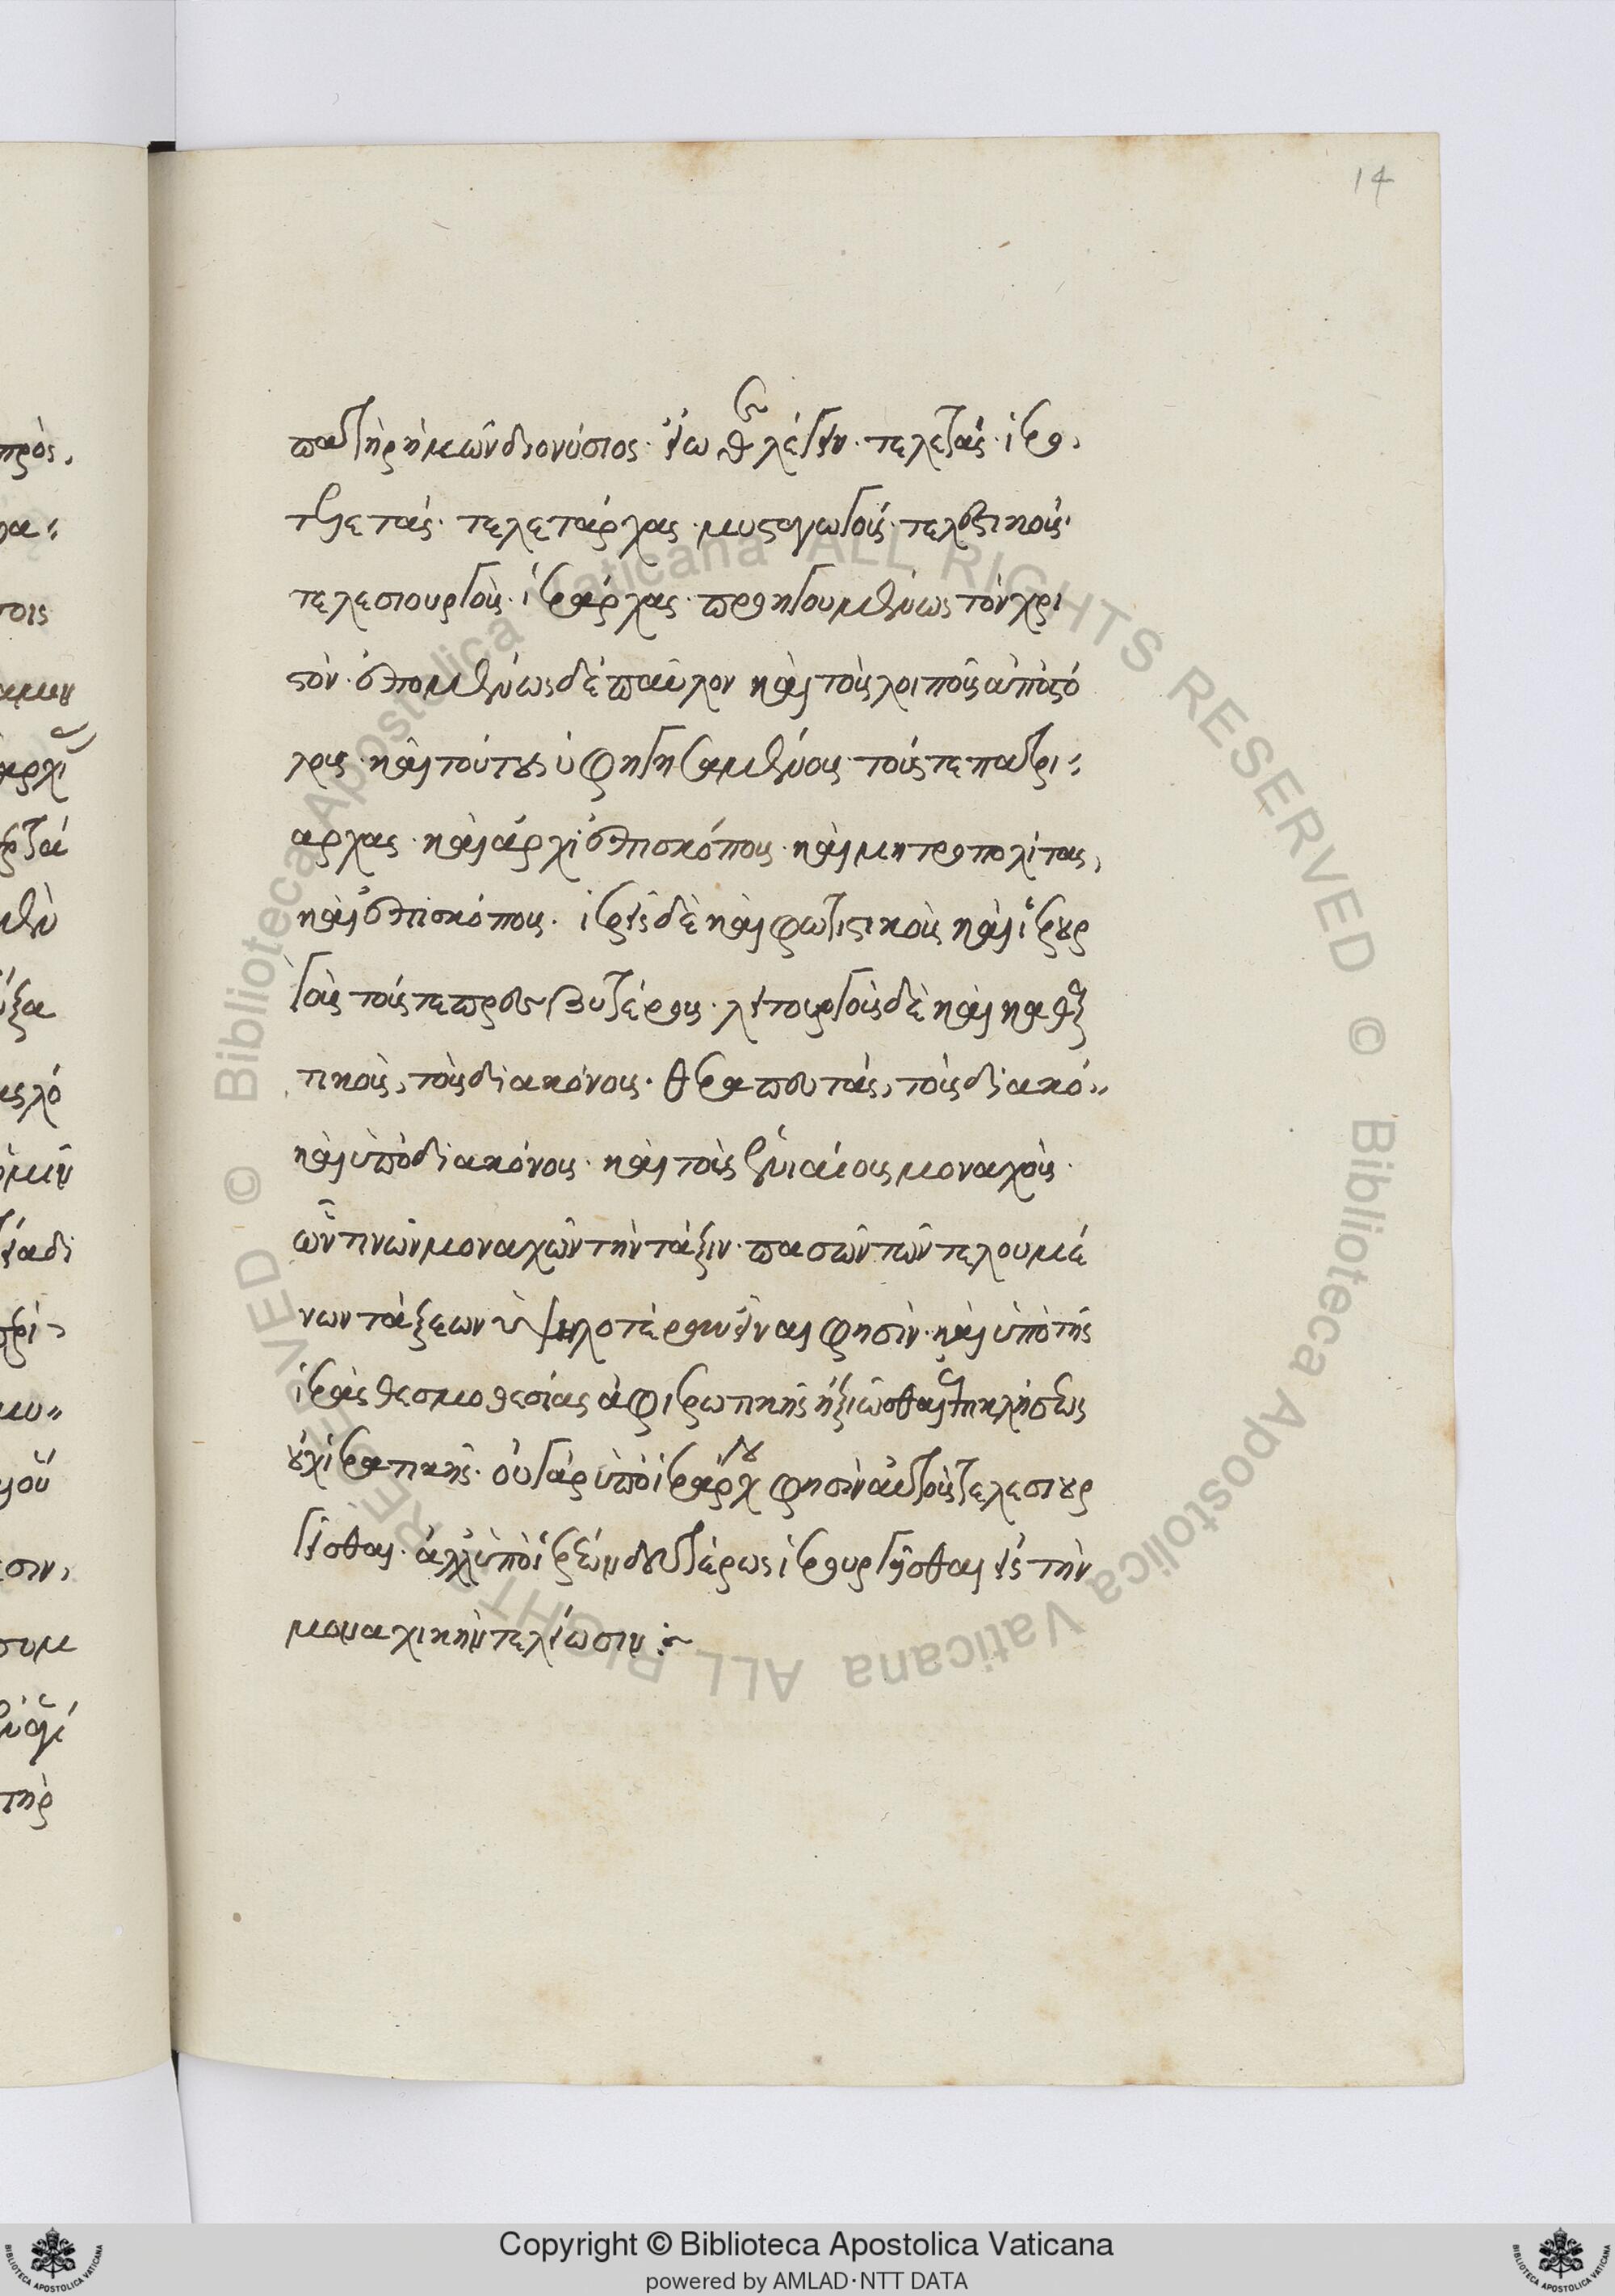 14
πατὴρ ἡμῶν διονύσιος. εἴωθε λέγειν. τελετάς. ἱερο,
τελετάς. τελετάρχας. μυσταγωγούς. τελεστικούς.
τελεσιουργοὺς. ἱεράρχας. προηγουμένως τὸν χρι
στὸν. ἑπομένως δὲ παῦλον καὶ τοὺς λοιποὺς ἀποστό
λους. καὶ τούτους ὑφηγησαμένους. τούς τε πατρι
αρχας. καὶ ἀρχιἐπισκόπους. καὶ μητροπολίτας,
καὶ ἐπισκόπους. ἱερεῖς δὲ καὶ φωτιστικοὺς καὶ ἱερουρ
γοὺς τούς τε πρεσβυτέρους. λειτουργοὺς δὲ καὶ καθαρ
τικοὺς, τοὺς διακόνους. θεραπευτάς, τοὺς διακό
καὶ ὑποδιακόνους. καὶ τοὺς ἐνιαίους μοναχοὺς.
ὧν τινῶν μοναχῶν τὴν τάξιν. πασῶν τῶν τελουμέ
νων τάξεων ὑψηλοτέραν εἶναι φησίν. καὶ ὑπὸ τῆς
ἱερᾶς θεσμοθεσίας ἀφιερωτικῆς ἠξιῶσθαι ἐπικλήσεως
οὐχ ἱερατικῆς. οὐ γὰρ ὑπὸ ἱεράρχου φησὶν αὐτοὺς τελεσιουρ
γεῖσθαι. ἀλλ' ὑπὸ ἱερέων δευτέρως ἱερουργῆσθαι εἰς τὴν
μοναχικὴν τελείωσιν :~
Copyright © Biblioteca Apostolica Vaticana
powered by AMLAD·NTT DATA